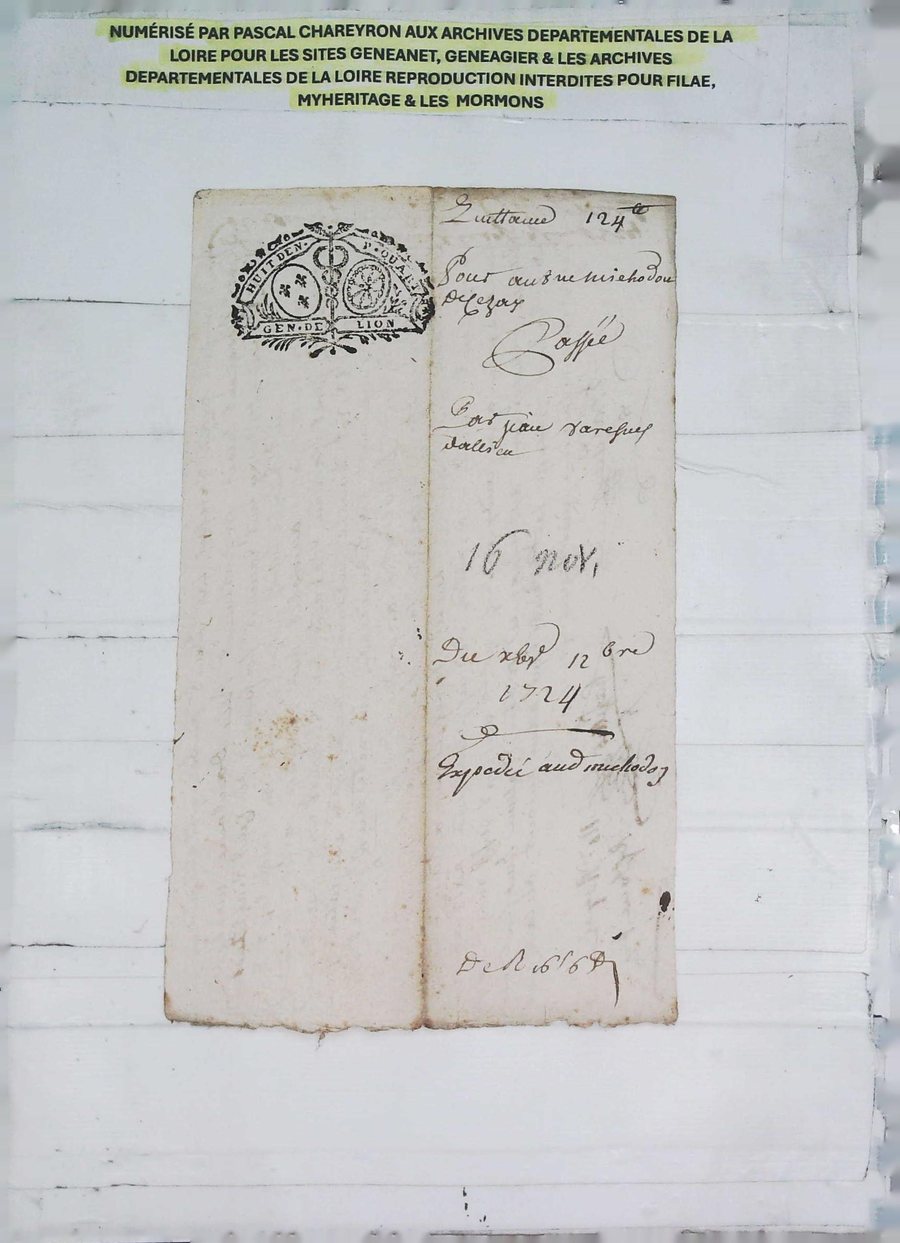 NUMÉRISÉ PAR PASCAL CHAREYRON AUX ARCHIVES DEPARTEMENTALES DE LA
LOIRE POUR LES SITES GENEANET, GENEAGIER & LES ARCHIVES
DEPARTEMENTALES DE LA LOIRE REPRODUCTION INTERDITES POUR FILAE,
MYHERITAGE & LES MORMONS
HUIT DEN. P. QUART
GEN. DE LION
Quittance 124 lt
Pour michodon
Passée
Par jean
16 nov.
Du 12 bre
1724
Expedié aud michodon